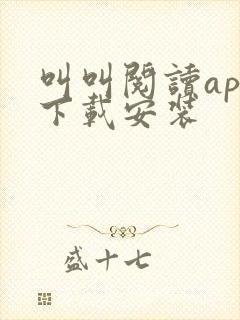 叫叫閱讀ap
下載安裝
盛十七